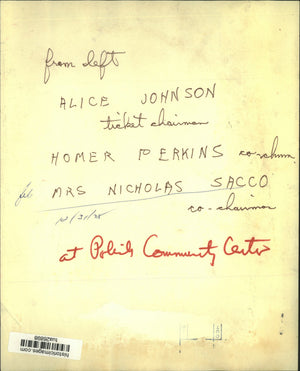 from left
ALICE JOHNSON
ticket chairman
HOMER PERKINS co-chmn.
MRS NICHOLAS SACCO
co-chairman
at Polish Community Center
historicimages.com